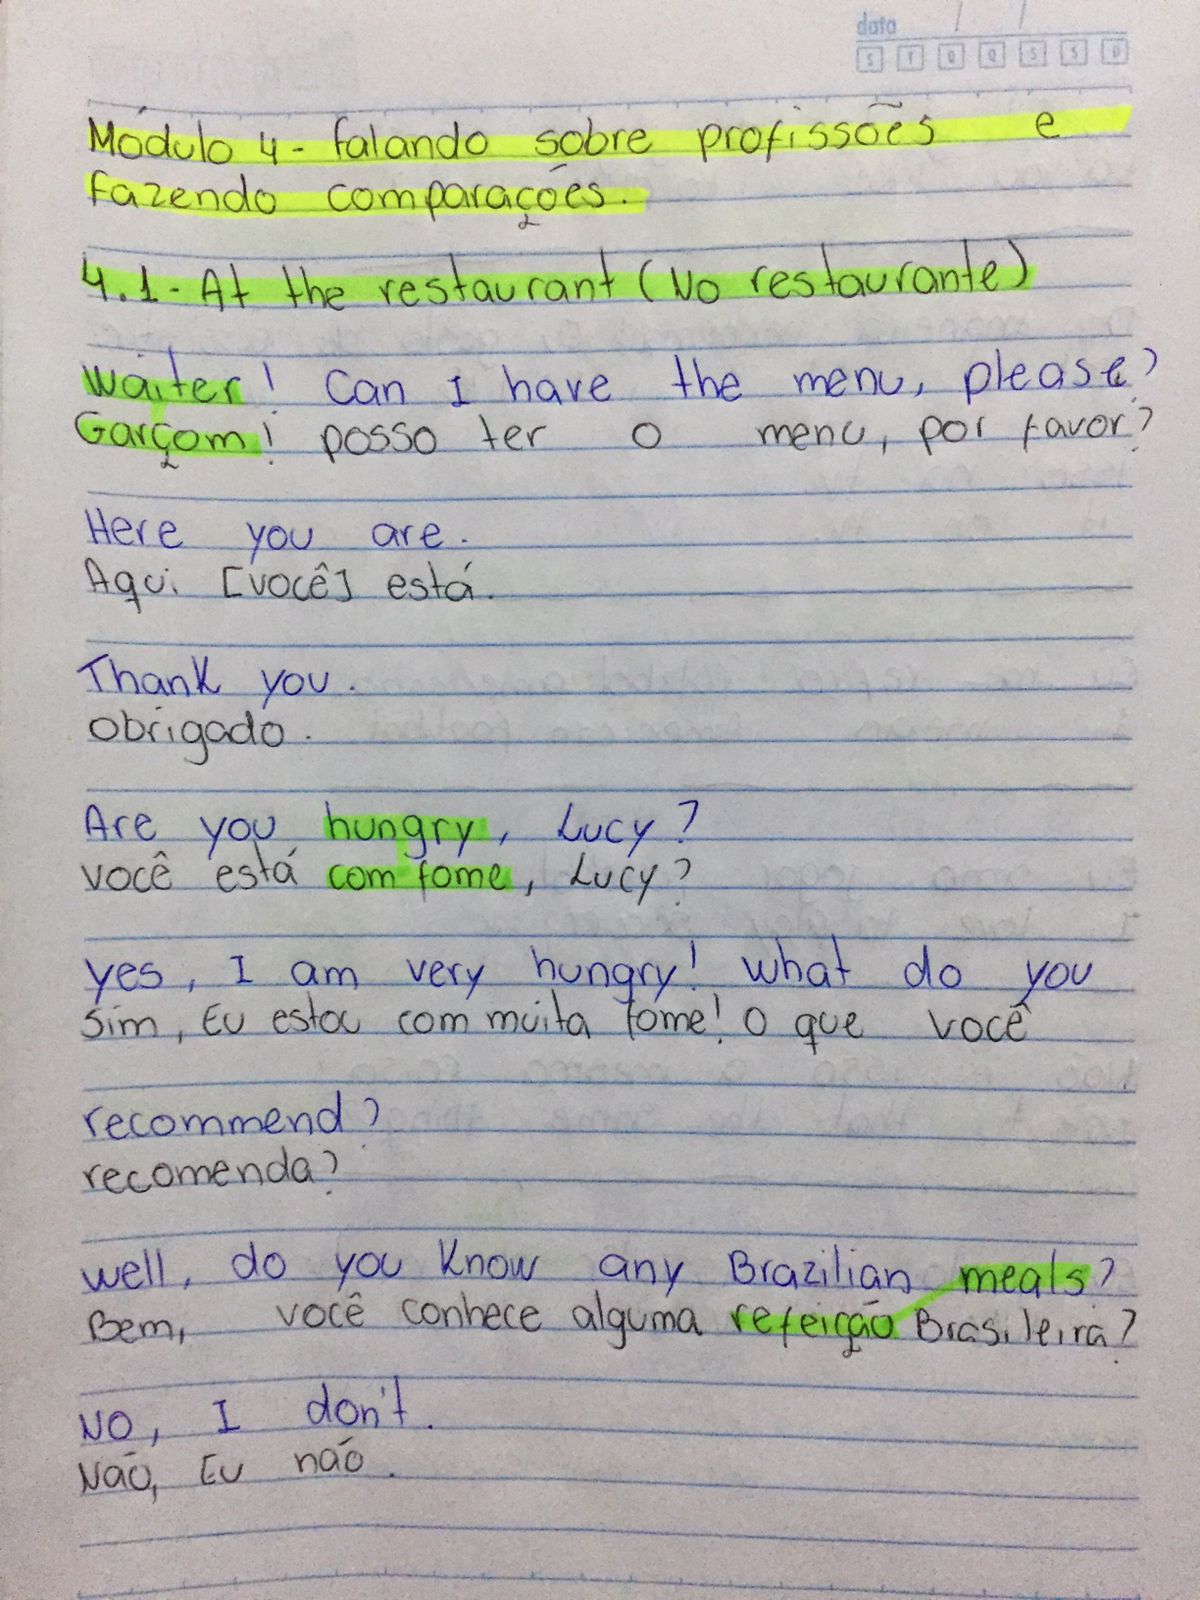 data / /
S T Q Q S S D
Módulo 4 - falando sobre profissões e
fazendo comparações.
4.1 - At the restaurant (No restaurante)
Waiter! Can I have the menu, please?
Garçom! posso ter o menu, por favor?
Here you are.
Aqui [você] está.
Thank you.
obrigado.
Are you hungry, Lucy?
você está com fome, Lucy?
yes, I am very hungry! what do you
sim, Eu estou com muita fome! o que você
recommend?
recomenda?
well, do you know any Brazilian meals?
Bem, você conhece alguma refeição Brasileira?
No, I don't.
Não, Eu não.